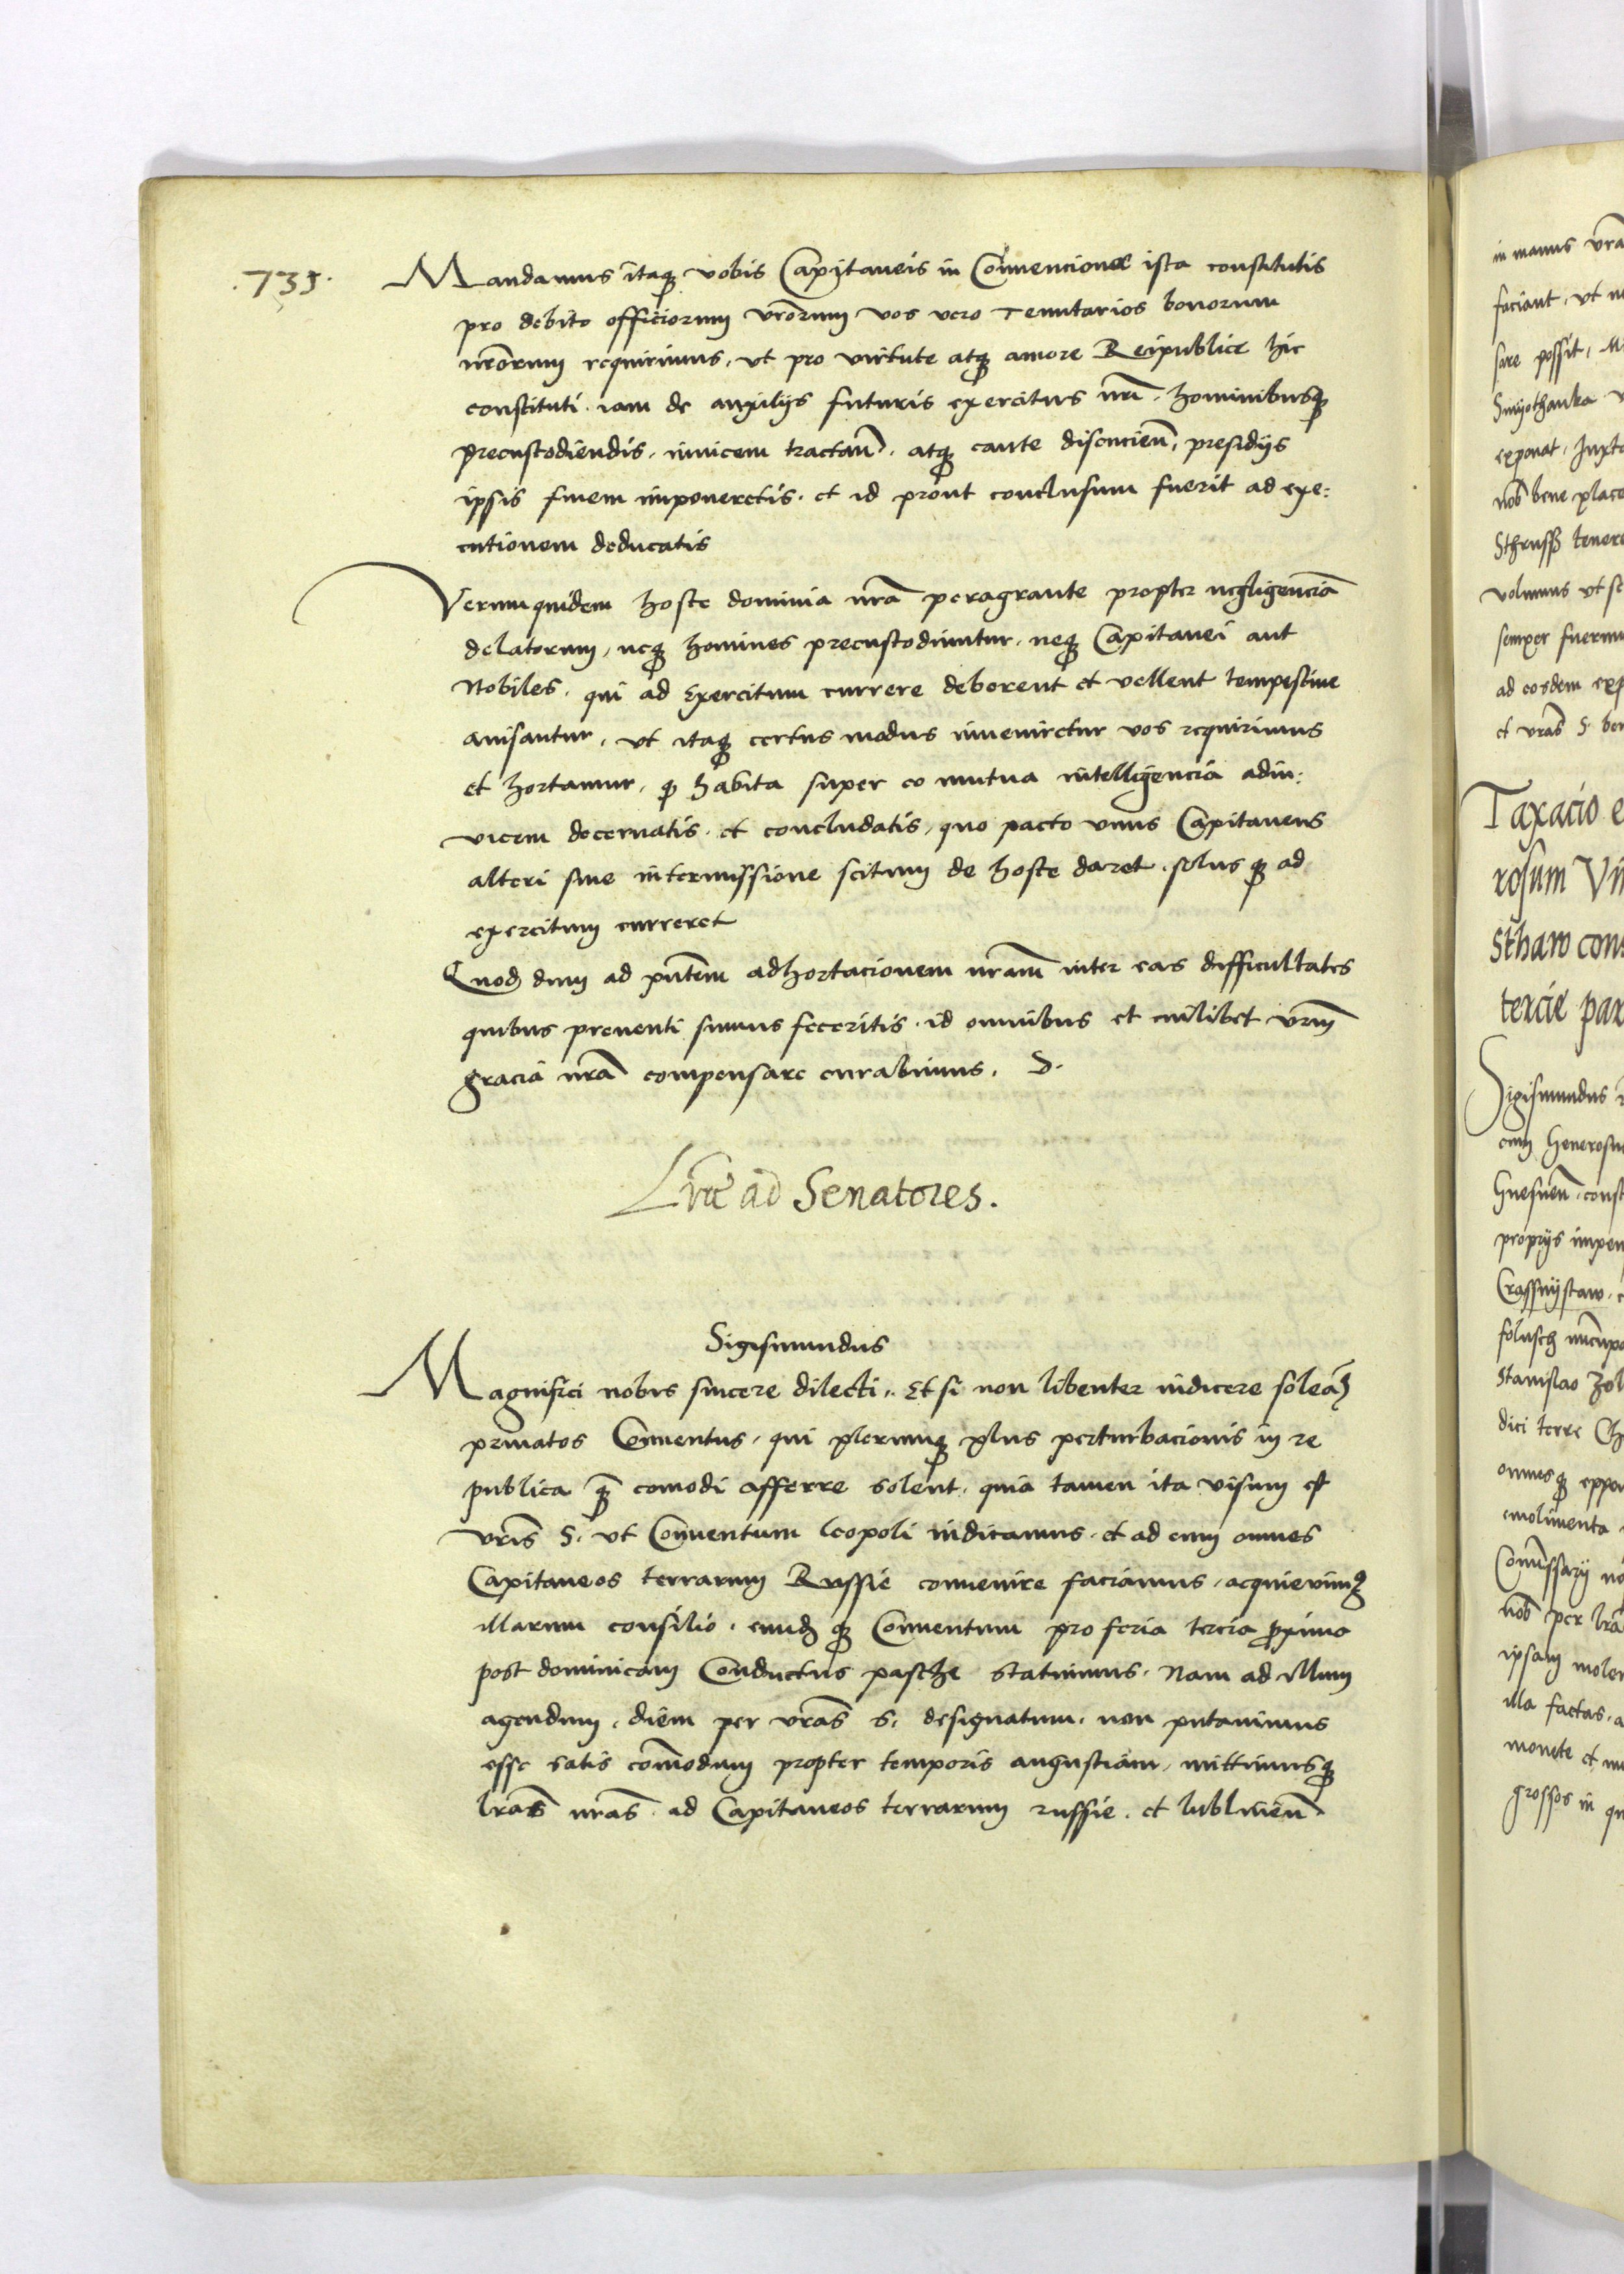 .735.
Mandamus itaq̃ vobis Capitaneis in Conuencione ista constitutis
pro debito officiorum vrõrum vos vero Tenutarios bonorum
nrõrum requirimus, vt pro virtute atq̃ amore Reipublice hic
constituti. iam de auxilijs futuris exercitus nrĩ. hominibusq̃
precustodiendis. inuicem tractañ. atq̃ caute discucieñ, presidijs
ipsis finem imponeretis. et id prout conclusum fuerit ad exe:
cutionem deducatis
Verumquidem hoste dominia nrã peragrante propter negligenciã
delatorum, neq̃ homines precustodiuntur. neq̃ Capitanei aut
Nobiles. qui ad Exercitum currere deberent et vellent tempestiue
auisantur, vt itaq̃ certus modus inueniretur vos requirimus
et hortamur. q̃ habita super eo mutua intelligencia adin:
vicem decernatis. et concludatis, quo pacto vnus Capitaneus
alteri sine intermissione scitum de hoste daret. solus q̃ ad
exercitum curreret
Quod dum ad pñtem adhortacionem nrãm inter eas difficultates
quibus preuenti sumus feceritis. id omnibus et cuilibet vrũm
gracia nrã compensare curabimus. D.
Lrẽ ad Senatores.
Sigismundus
Magnifici nobis sincere dilecti. Et si non libenter indicere soleaꝫ
priuatos Conuentus, qui plerumq̃ plus perturbacionis in re
publica q̃ comodi afferre solent. quia tamen ita visum est
vrĩs S. vt Conuentum leopoli indicamus. et ad eum omnes
Capitaneos terrarum Russie conuenire faciamus, acquieuimꝰ
illarum consilio. eundꝫ q̃ Conuentum pro feria tercia proxima
post dominicam Conductus pasche statuimus. Nam ad illum
agendum, diem per vrãs S. designatum. non putauimus
esse satis com̃odum propter temporis angustiam, mittimusq̃
lrãs nrãs. ad Capitaneos terrarum russie. et lublineñ
in manus vrã
faciant, vt
sare possit,
exponat, Juxta
nob̃ bene place
tenere
volumus vt
semper
ad eosdem
et vrãs S.
Taxacio e
rosum
sthaw cons
tercie par
Sigismundus
cum Generosu
Gnesneñ. const
proprijs impen
Crassnystaw.
Stanislao Zol
dici terre Ch
omnesq̃
emolimenta
nob̃ per
ipsam
illa factas.
monete et
grossos in